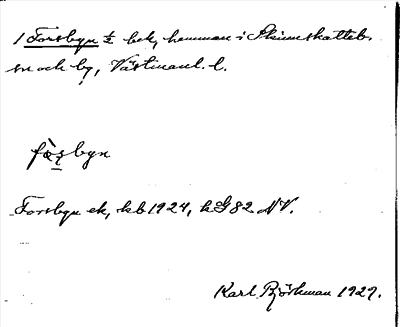 1 Forsbyn ½ bek, hemman i Skinnskatteb.
sn och by, Västmanl. l.
fòrbyn
Forsbyn ek, kb 1924, kG82 NV.
Karl Björkman 1927.